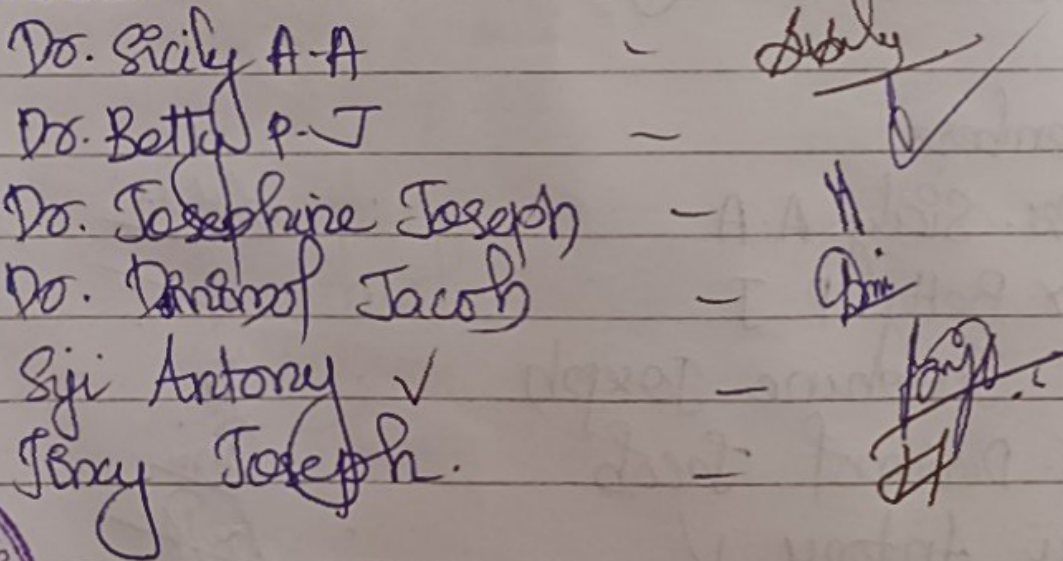 Dr. Sicily A-A -
Dr. Betty P-J -
Dr. Josephine Joseph -
Dr. Jacob -
Siji Antony V -
Joseph. -